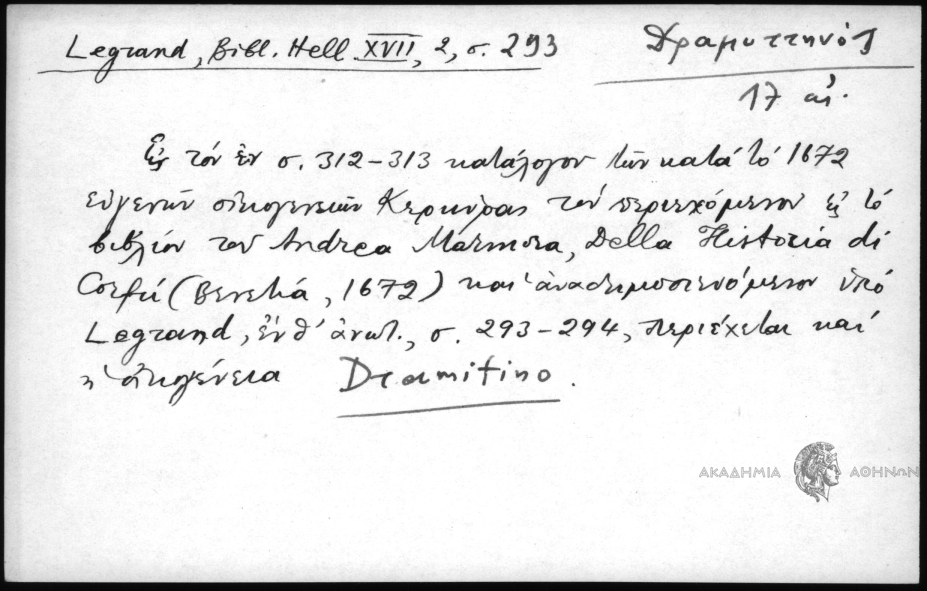 Legrand, Bibl. Hell. XVII, 2, σ. 293
Δραμυττηνός
17 αἰ.
Εἰς τόν ἐν σ. 312-313 κατάλογον τῶν κατά τό 1672
εὐγενῶν οἰκογενειῶν Κερκύρας τόν περιεχόμενον εἰς τό
βιβλίον τοῦ Andrea Marmora, Della Historia di
Corfú (Βενετιά, 1672) καί ἀναδημοσιευόμενον ὑπό
Legrand, ἔνθ' ἀνωτ., σ. 293-294, περιέχεται καί
ἡ οἰκογένεια Dramitino.
ΑΚΑΔΗΜΙΑ ΑΘΗΝΩΝ